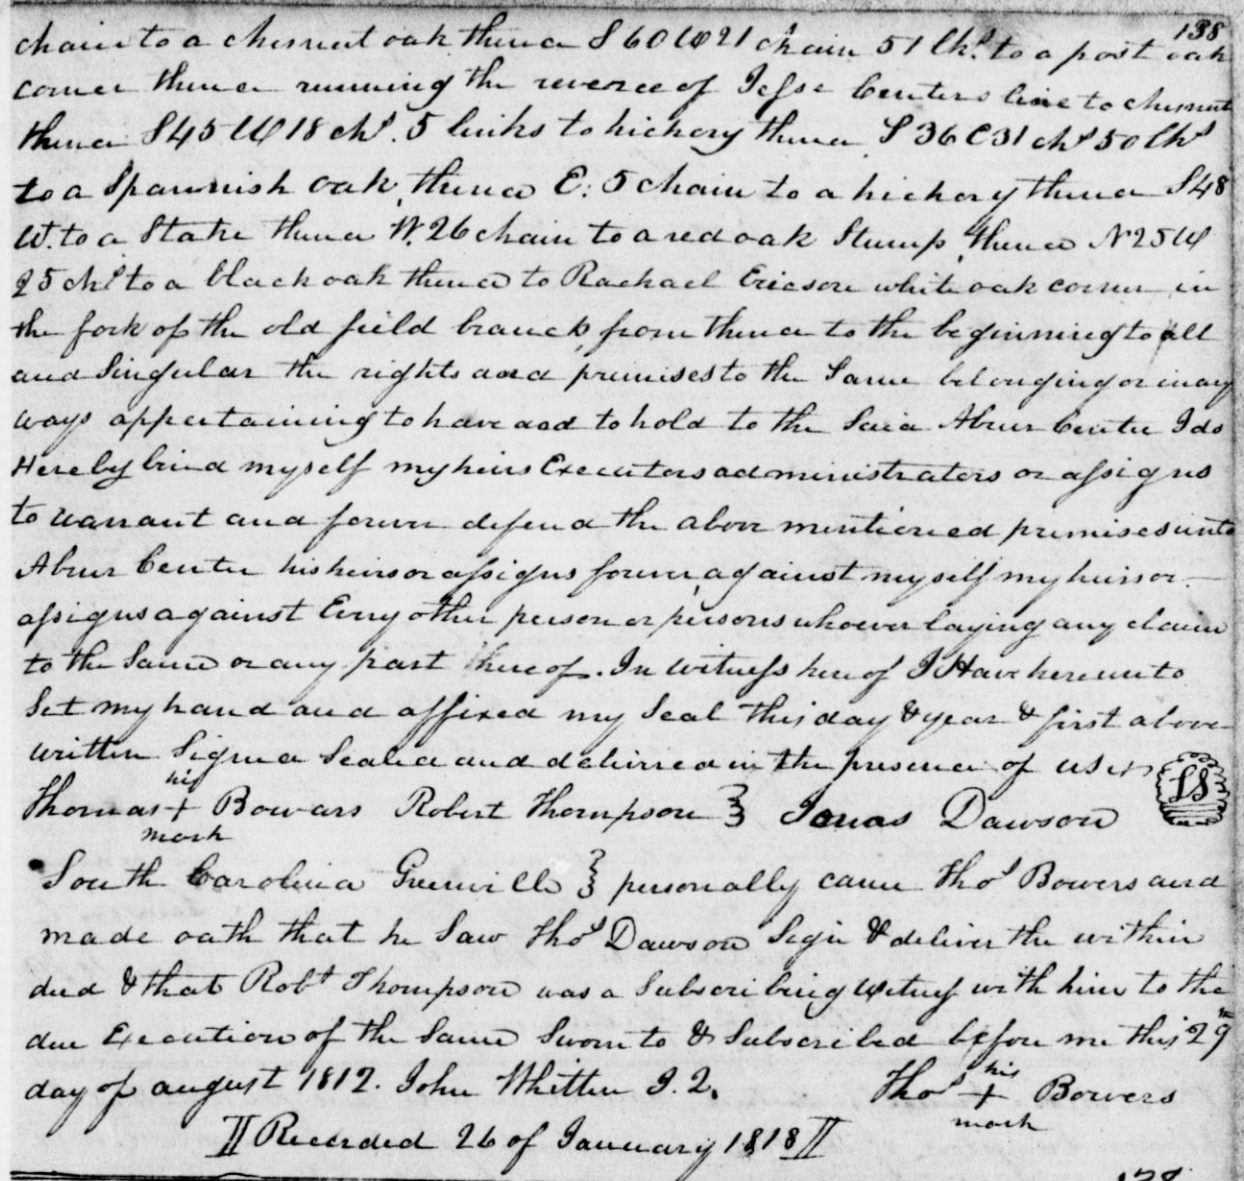 138
chain to a chesnut oak thence S 60 W 21 chain 51 lks. to a post oak
corner thence running the reverce of Jesse Centers line to chesnut
thence S 45 W 18 chs. 5 links to hickory thence S 36 E 31 chs 50 lks
to a Spannish oak, thence E. 5 chain to a hickory thence S 48
W. to a Stake thence W. 26 chain to a red oak Stump, thence N 25 W
25 chs to a black oak thence to Rachael Ericson white oak corner in
the fork of the old field branch, from thence to the beginning to all
and Singular the rights and premises to the Same belonging or in any
ways appertaining to have and to hold to the Said Abner Center I do
Hereby bind myself my heirs Executors administrators or assigns
to warrant and forever defend the above mentioned premises unto
Abner Center his heirs or assigns forever, against myself my heirs or
assigns against Every other person or persons whoever laying any claim
to the Same or any part thereof. In witness hereof I Have hereunto
Set my hand and affixed my Seal this day & year & first above
written Signed Sealed and delivered in the presence of us
his
Thomas + Bowars Robert Thompson } Jonas Dawson LS
mark
South Carolina Greenville } personally came Thos Bowers and
made oath that he Saw Thos Dawson Sign & deliver the within
deed & that Robt Thompson was a Subscribing Witness with him to the
due Execution of the Same Sworn to & Subscribed before me this 29th
day of august 1812. John Whitten J. Q. Thos his + Bowers
mark
Recorded 26 of January 1818